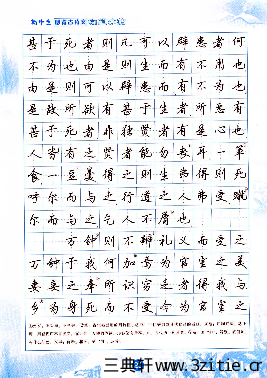 甚于死者则凡可以辟患者何
不为也由是则生而有不用也
由是则可以辟患而有不为也
是故所欲有甚于生者所恶有
甚于死者非独贤者有是心也
人皆有之贤者能勿丧耳一箪
食一豆羹得之则生弗得则死
呼尔而与之行道之人弗受蹴
尔而与之乞人不屑也
万钟则不辩礼义而受之
万钟于我何加焉为宫室之美
妻妾之奉所识穷乏者得我与
乡为身死而不受今为宫室之
三典轩 www.3zitie.cn